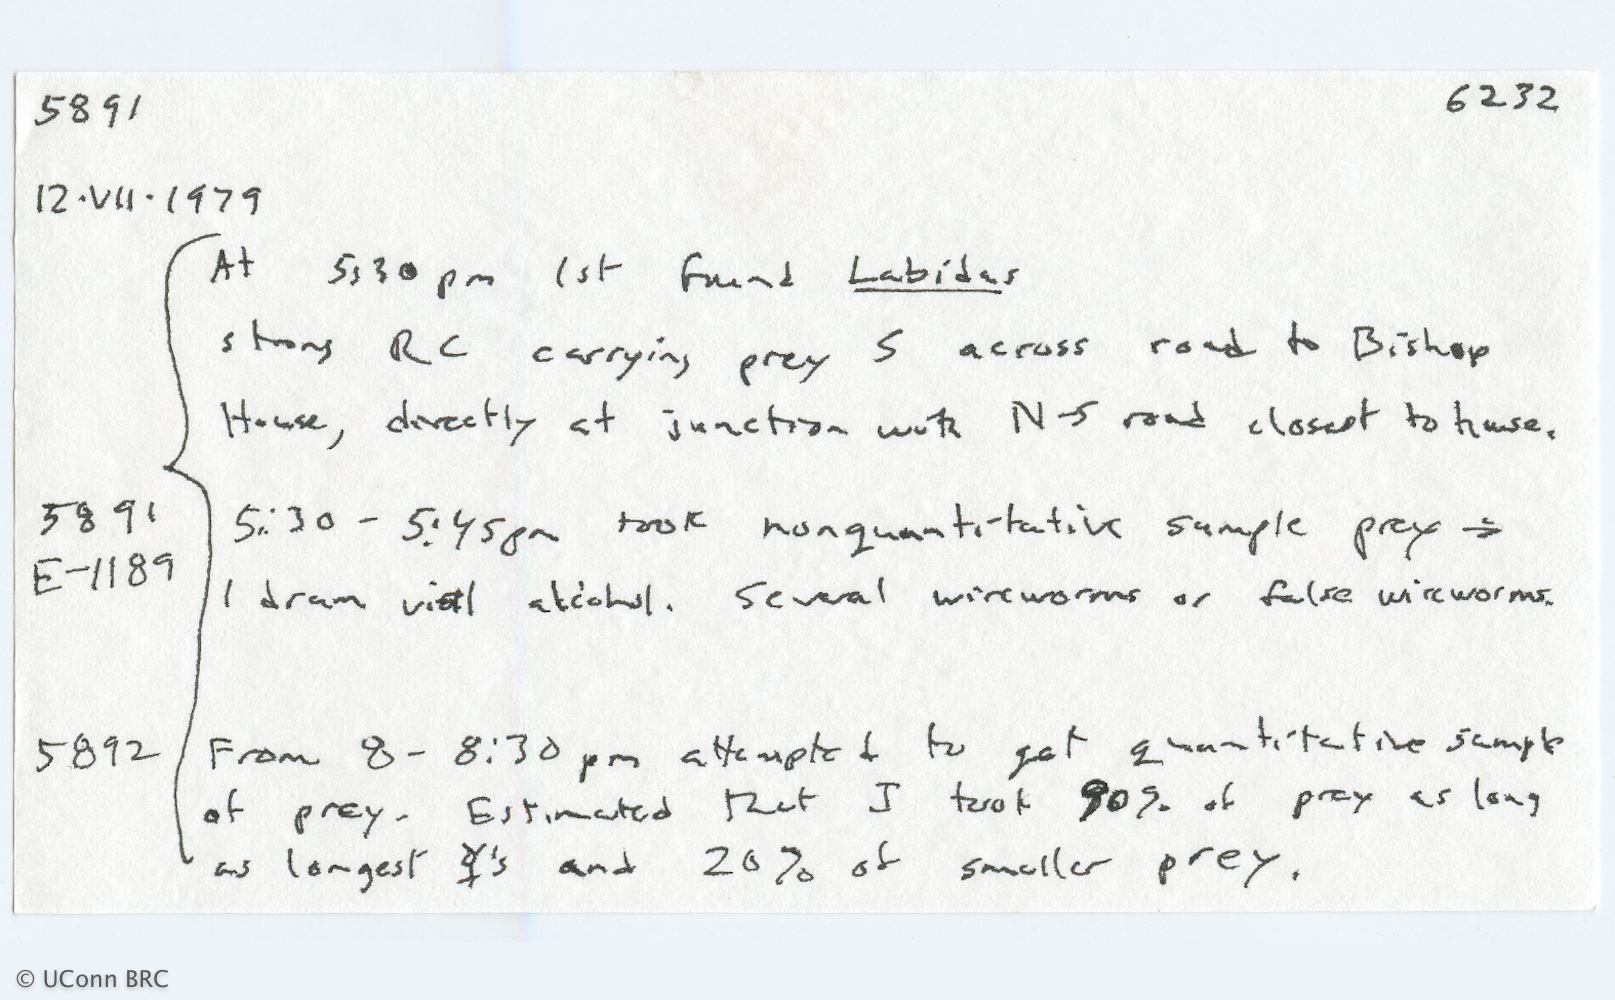 5891 6232
12·VII·1979
At 5:30 pm 1st found Labidus
strong RC carrying prey S across road to Bishop
House, directly at junction with N-S road closest to house.
5891 5:30 - 5:45pm took nonquantitative sample prey →
E-1189 1 dram vial alcohol. Several wireworms or false wireworms.
5892 From 8 - 8:30 pm attempted to get quantitative sample
of prey. Estimated that I took 90% of prey as long
as longest ☿'s and 20% of smaller prey.
© UConn BRC